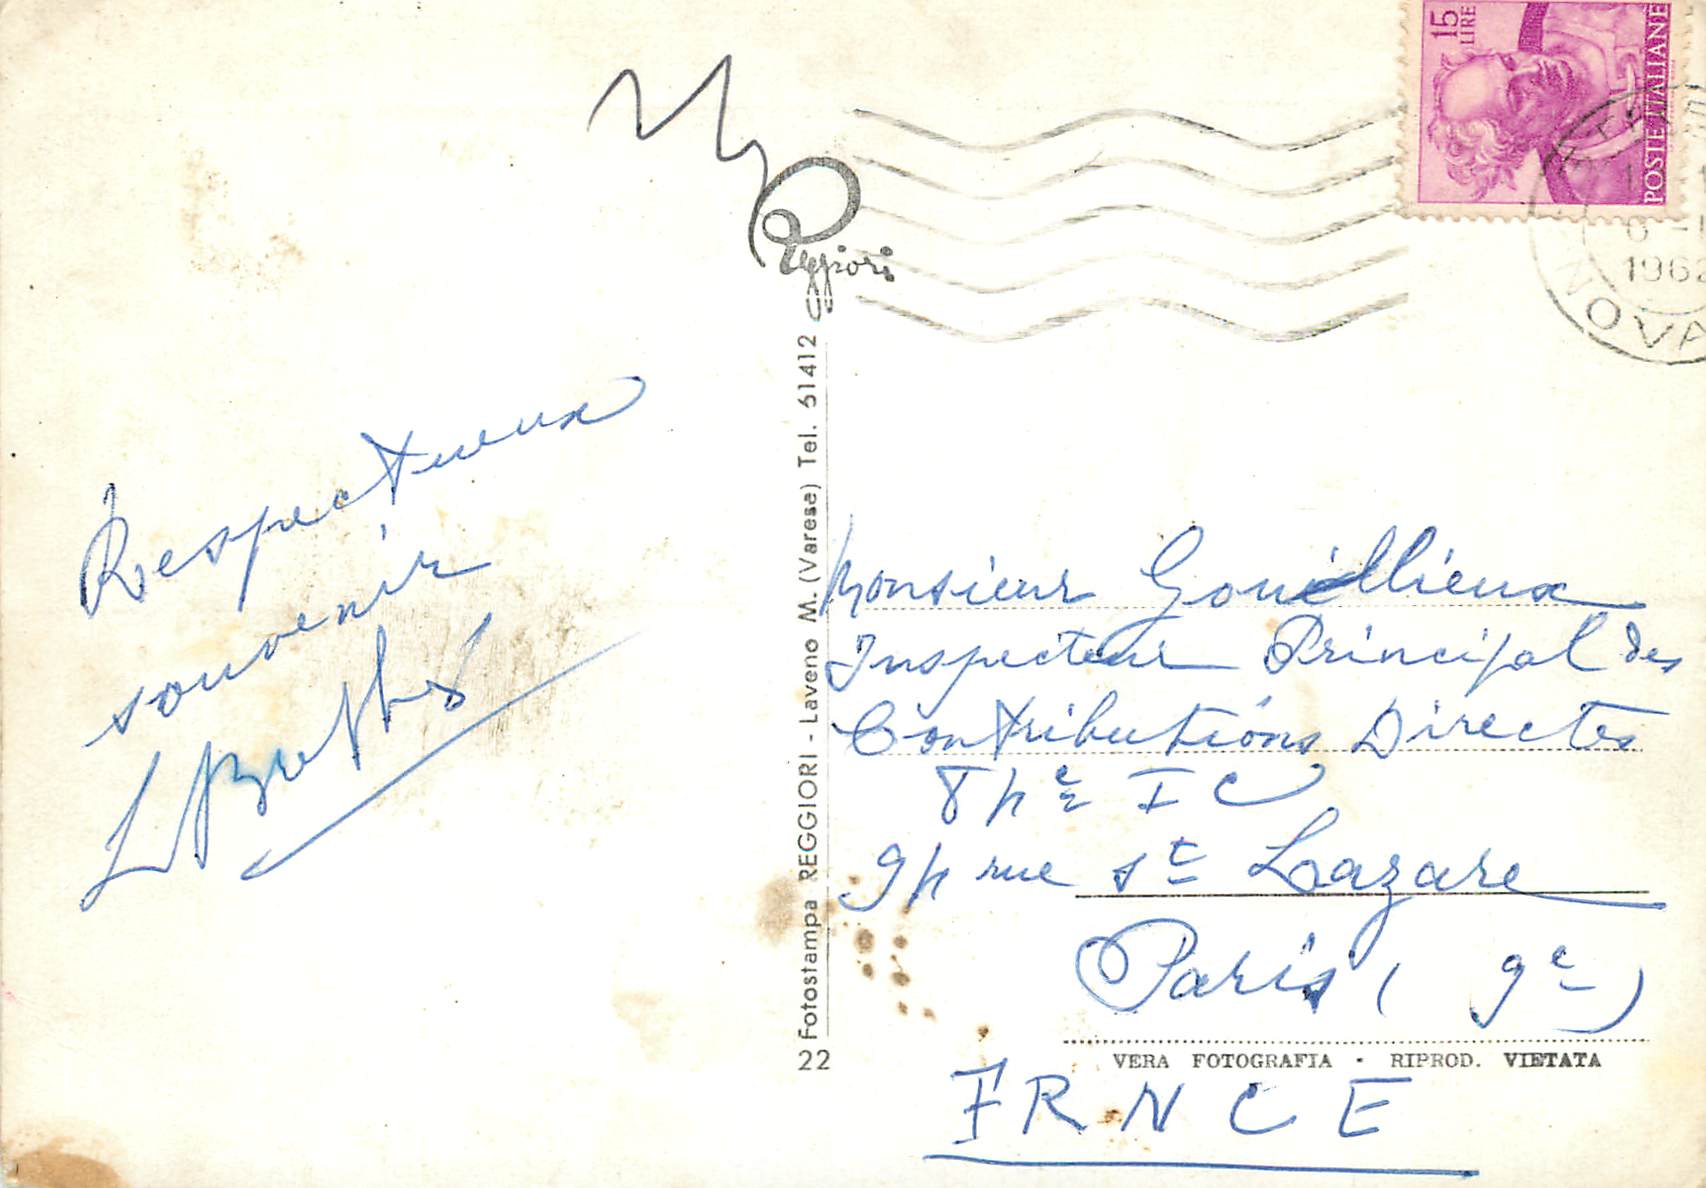 Respectueux
souvenir
Reggiori
Fotostampa REGGIORI - Laveno M. (Varese) Tel. 61412
22
15
LIRE
POSTE ITALIANE
1962
NOVA
Monsieur Gouillieux
Inspecteur Principal des
Contributions Directes
IC
rue St Lazare
Paris ( 9e )
VERA FOTOGRAFIA • RIPROD. VIETATA
FRNCE